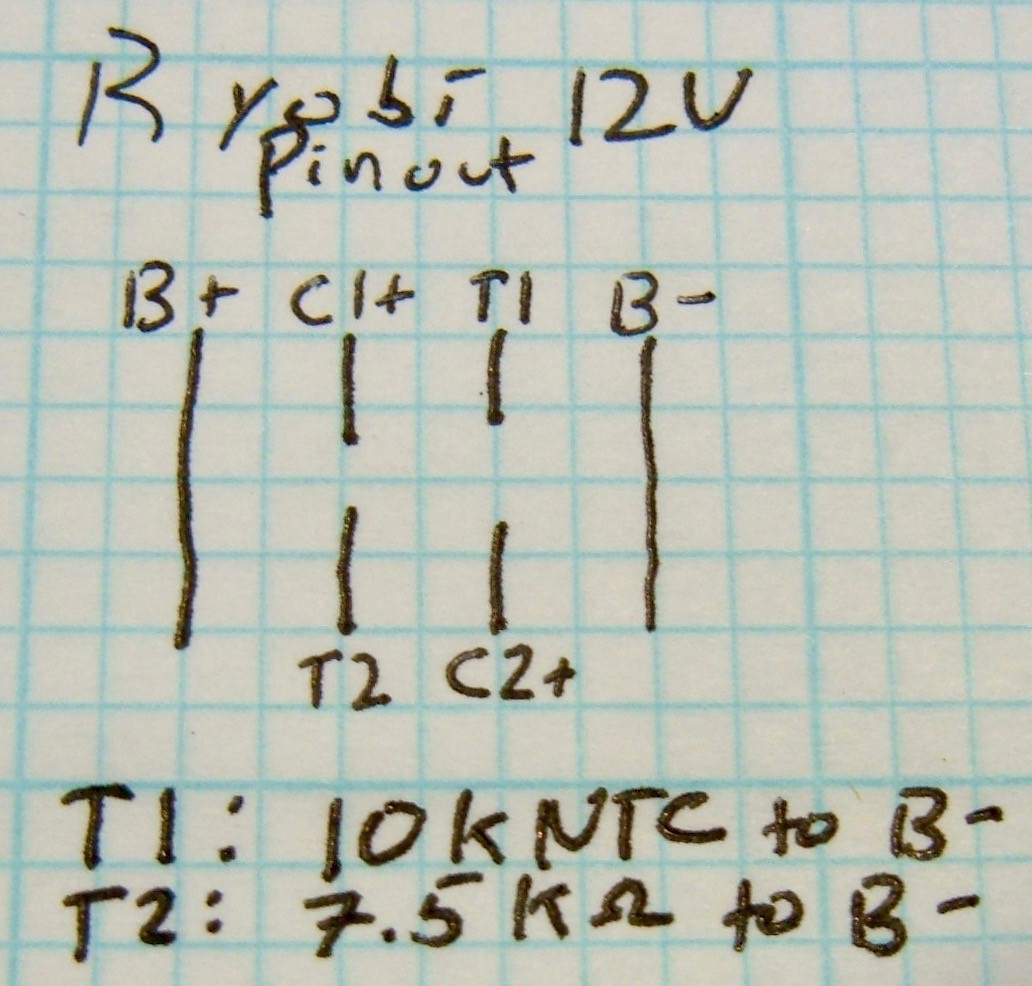 Ryobi 12V
Pinout
B+ C1+ T1 B-
T2 C2+
T1: 10K NTC to B-
T2: 7.5 KΩ to B-